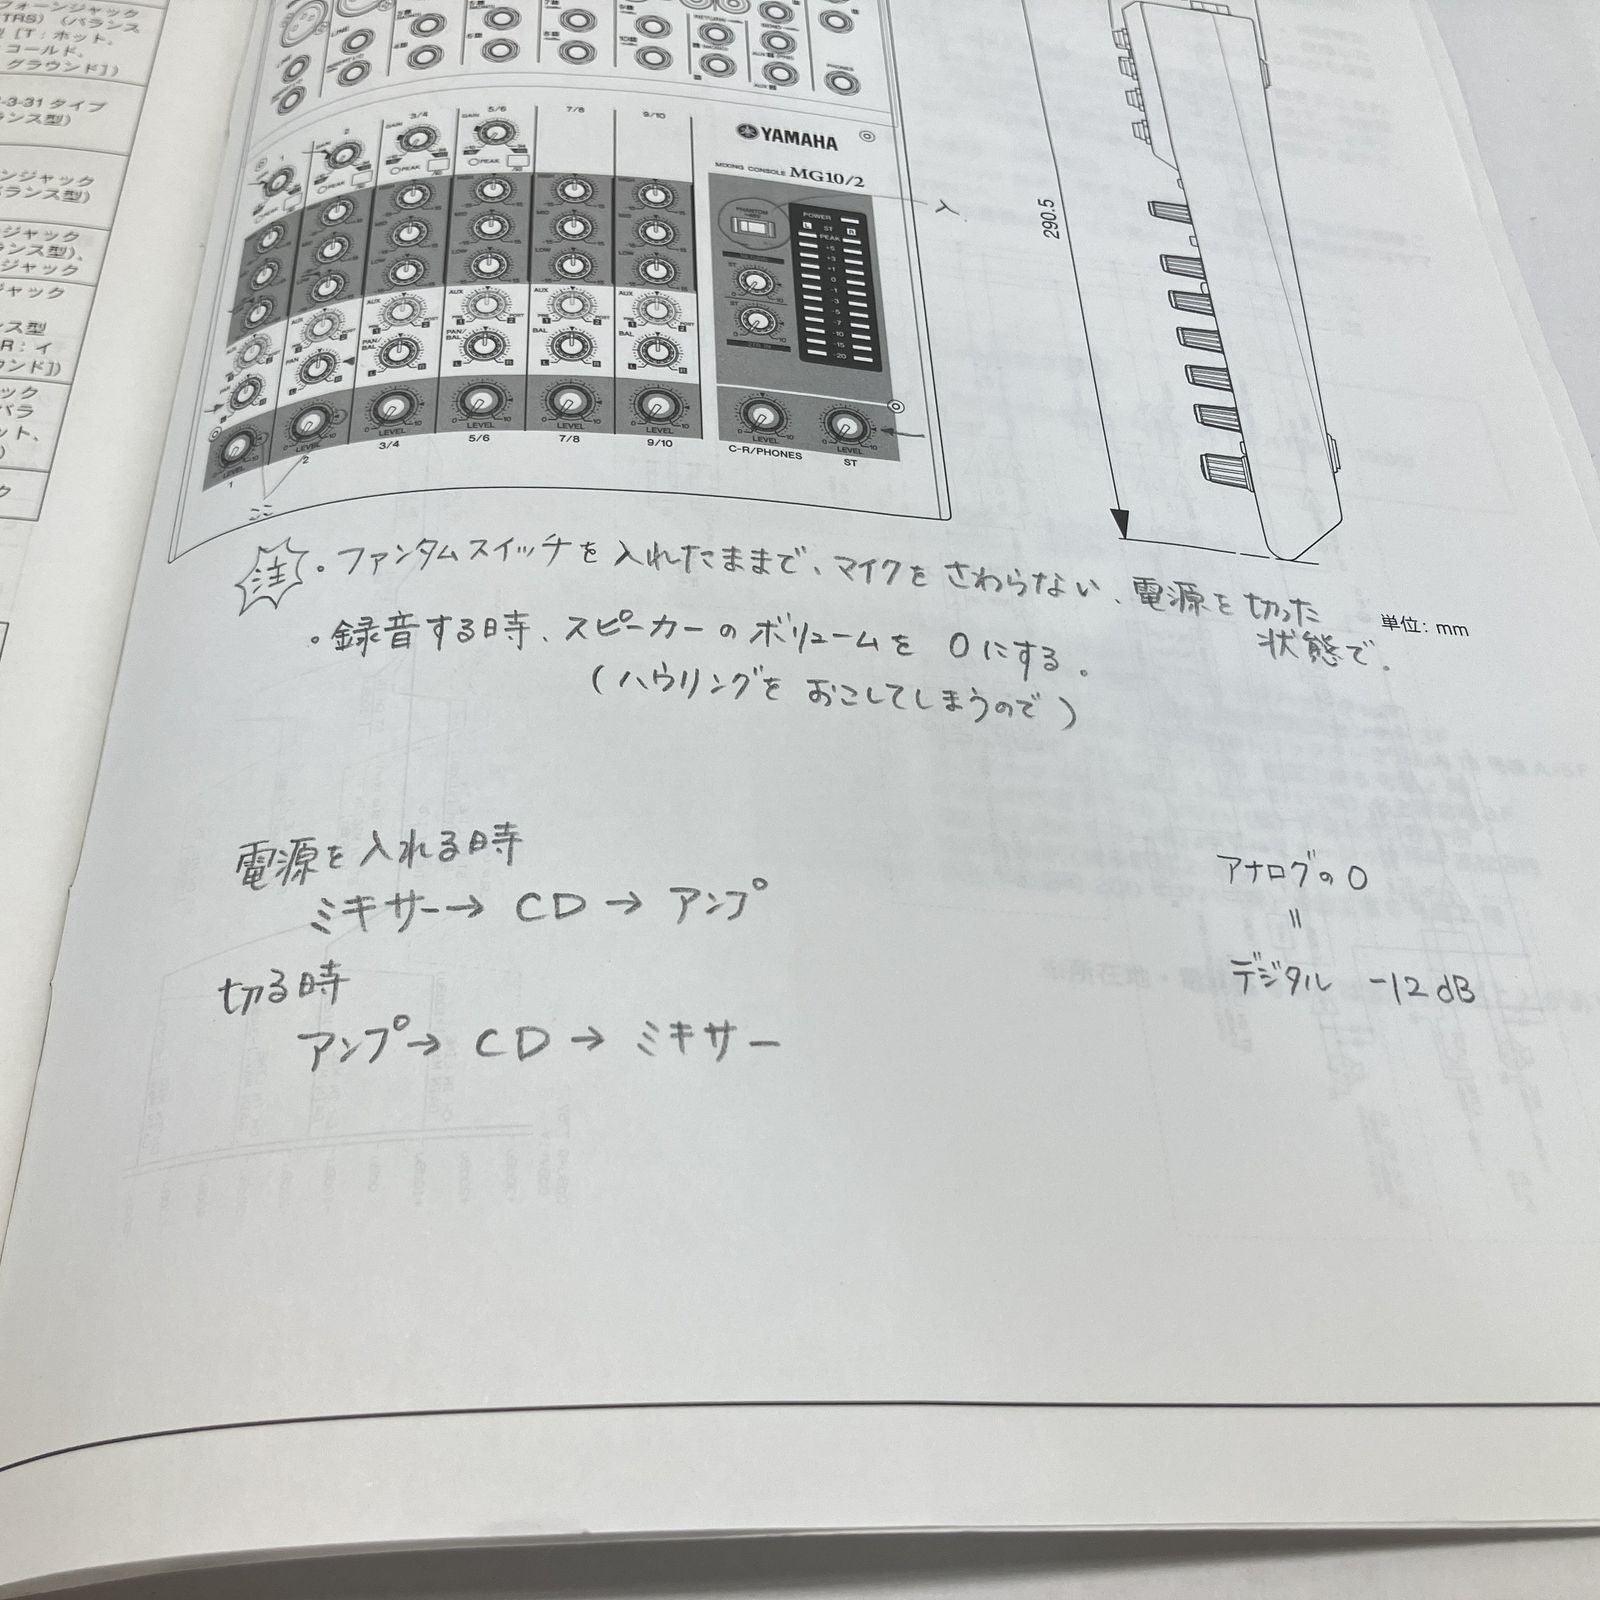 フォーンジャック
(TRS)(バランス
[T:ホット、
コールド、
グラウンド])
-3-31 タイプ
ランス型)
ンジャック
バランス型)
ージャック
ランス型)、
ジャック
ジャック
ンス型
R:イ
ウンド])
ック
バラ
ット、
ク
LINE
RETURN
PHONES
1
2
3/4
5/6
7/8
9/10
GAIN
GAIN
PEAK
PEAK
PEAK
HIGH
MID
LOW
AUX
AUX
AUX
AUX
AUX
PRE
POST
PAN
PAN/BAL
PAN/BAL
BAL
BAL
L R
LEVEL
LEVEL
LEVEL
LEVEL
LEVEL
LEVEL
1
2
3/4
5/6
7/8
9/10
YAMAHA
MIXING CONSOLE MG10/2
PHANTOM +48V
入
POWER
L ST R
PEAK
+5
+3
+1
0
-1
-3
-5
-7
-10
-15
-20
ST
ST
LEVEL
LEVEL
C-R/PHONES
ST
290.5
ここ
注 。ファンタムスイッチを入れたままで、マイクをさわらない、電源を切った
状態で。
単位: mm
。録音する時、スピーカーのボリュームを 0にする。
(ハウリングを おこしてしまうので)
電源を入れる時
ミキサー→ CD → アンプ
切る時
アンプ→ CD → ミキサー
アナログの 0
〃
デジタル -12 dB